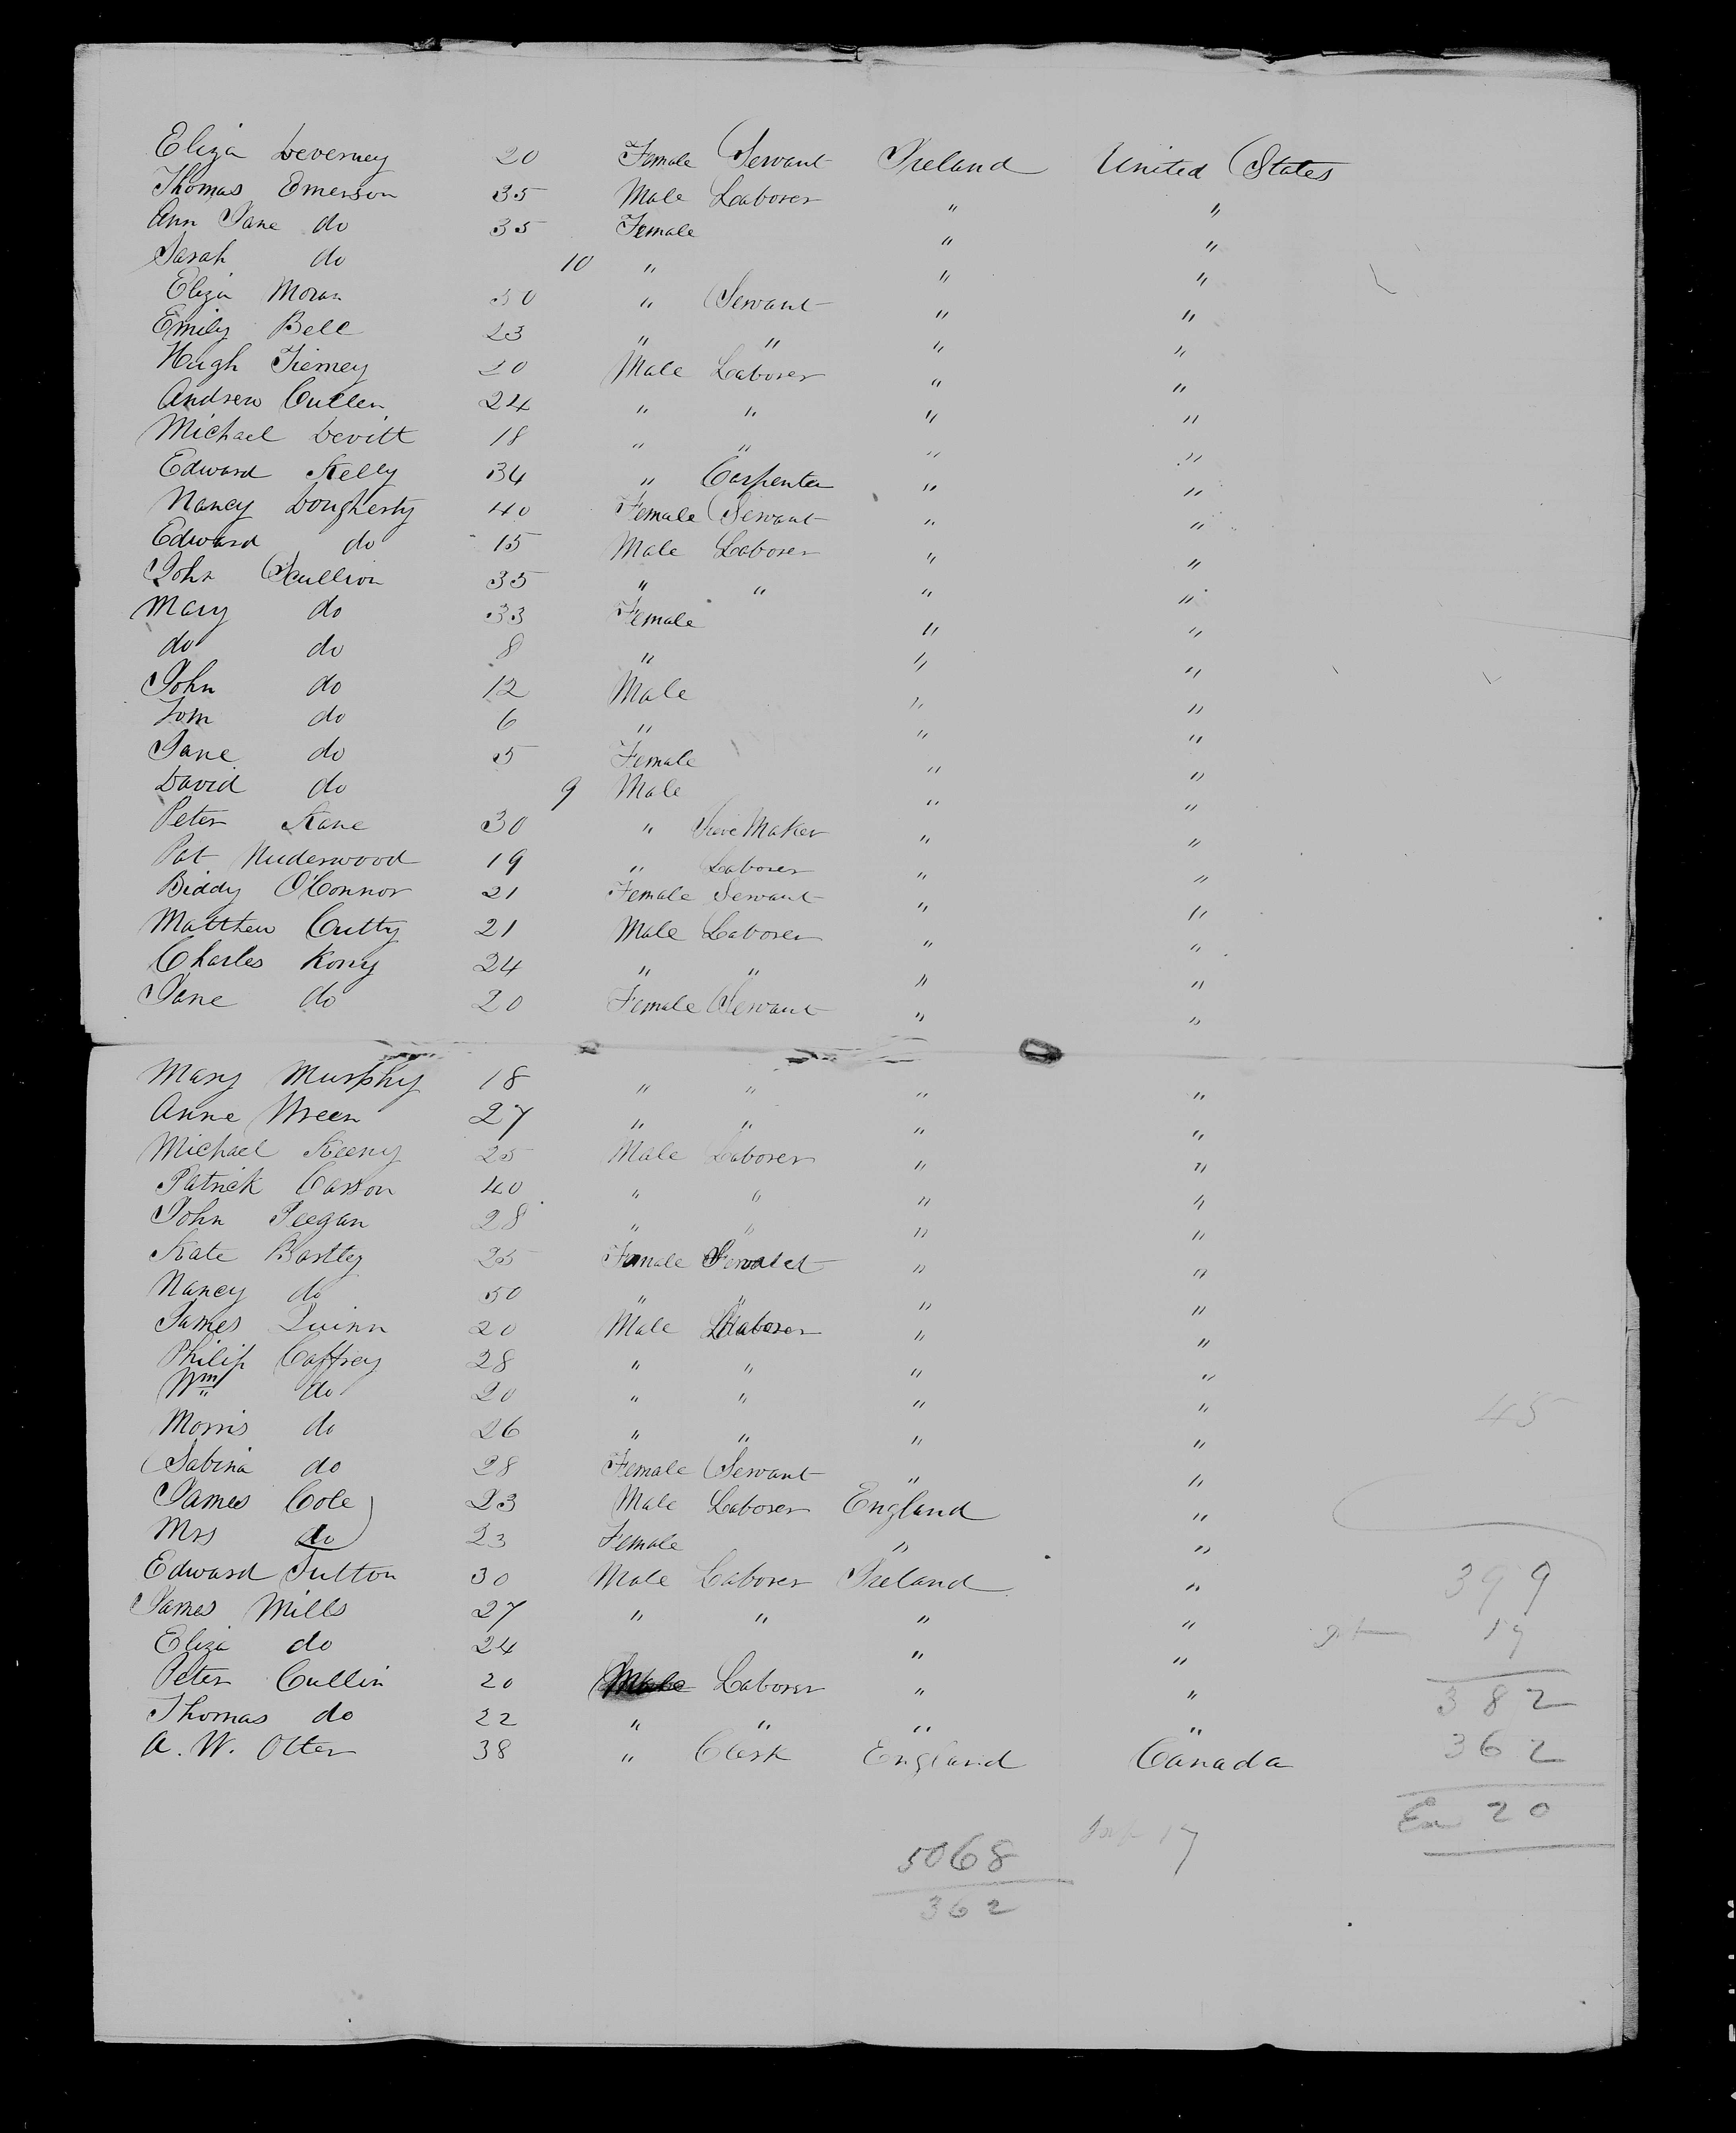 Eliza Deverney 20 Female Servant Ireland United States
Thomas Emerson 35 Male Laborer " "
Ann Jane do 35 Female " "
Sarah do 10 " " "
Eliza Moran 30 " Servant " "
Emily Bell 23 " " " "
Hugh Tierney 20 Male Laborer " "
Andrew Cullen 24 " " " "
Michael Devitt 18 " " " "
Edward Kelly 34 " Carpenter " "
Nancy Dougherty 40 Female Servant " "
Edward do 15 Male Laborer " "
John Scullion 35 " " " "
Mary do 33 Female " "
do do 8 " " "
John do 12 Male " "
Tom do 6 " " "
Jane do 5 Female " "
David do 9 Male " "
Peter Kane 30 " Maker " "
Pat Nuderwood 19 " Laborer " "
Biddy O'Connor 21 Female Servant " "
Matthew Cutty 21 Male Laborer " "
Charles Kony 24 " " " "
Jane do 20 Female Servant " "
Mary Murphy 18 " " " "
Anne Wreen 27 " " " "
Michael Keeny 25 Male Laborer " "
Patrick Carson 40 " " " "
John Feegan 28 " " " "
Kate Bartley 25 Female Servant " "
Nancy do 50 " " " "
James Quinn 20 Male Laborer " "
Philip Caffrey 28 " " " "
Wm do 20 " " " "
Morris do 26 " " " "
Sabina do 28 Female Servant " "
James Cole 23 Male Laborer England "
Mrs do 23 Female " "
Edward Fulton 30 Male Laborer Ireland "
James Mills 27 " " " "
Eliza do 24 " "
Peter Cullin 20 Male Laborer " "
Thomas do 22 " " " "
A. W. Otter 38 " Clerk England Canada
45
399
17
382
362
20
5068
362
17